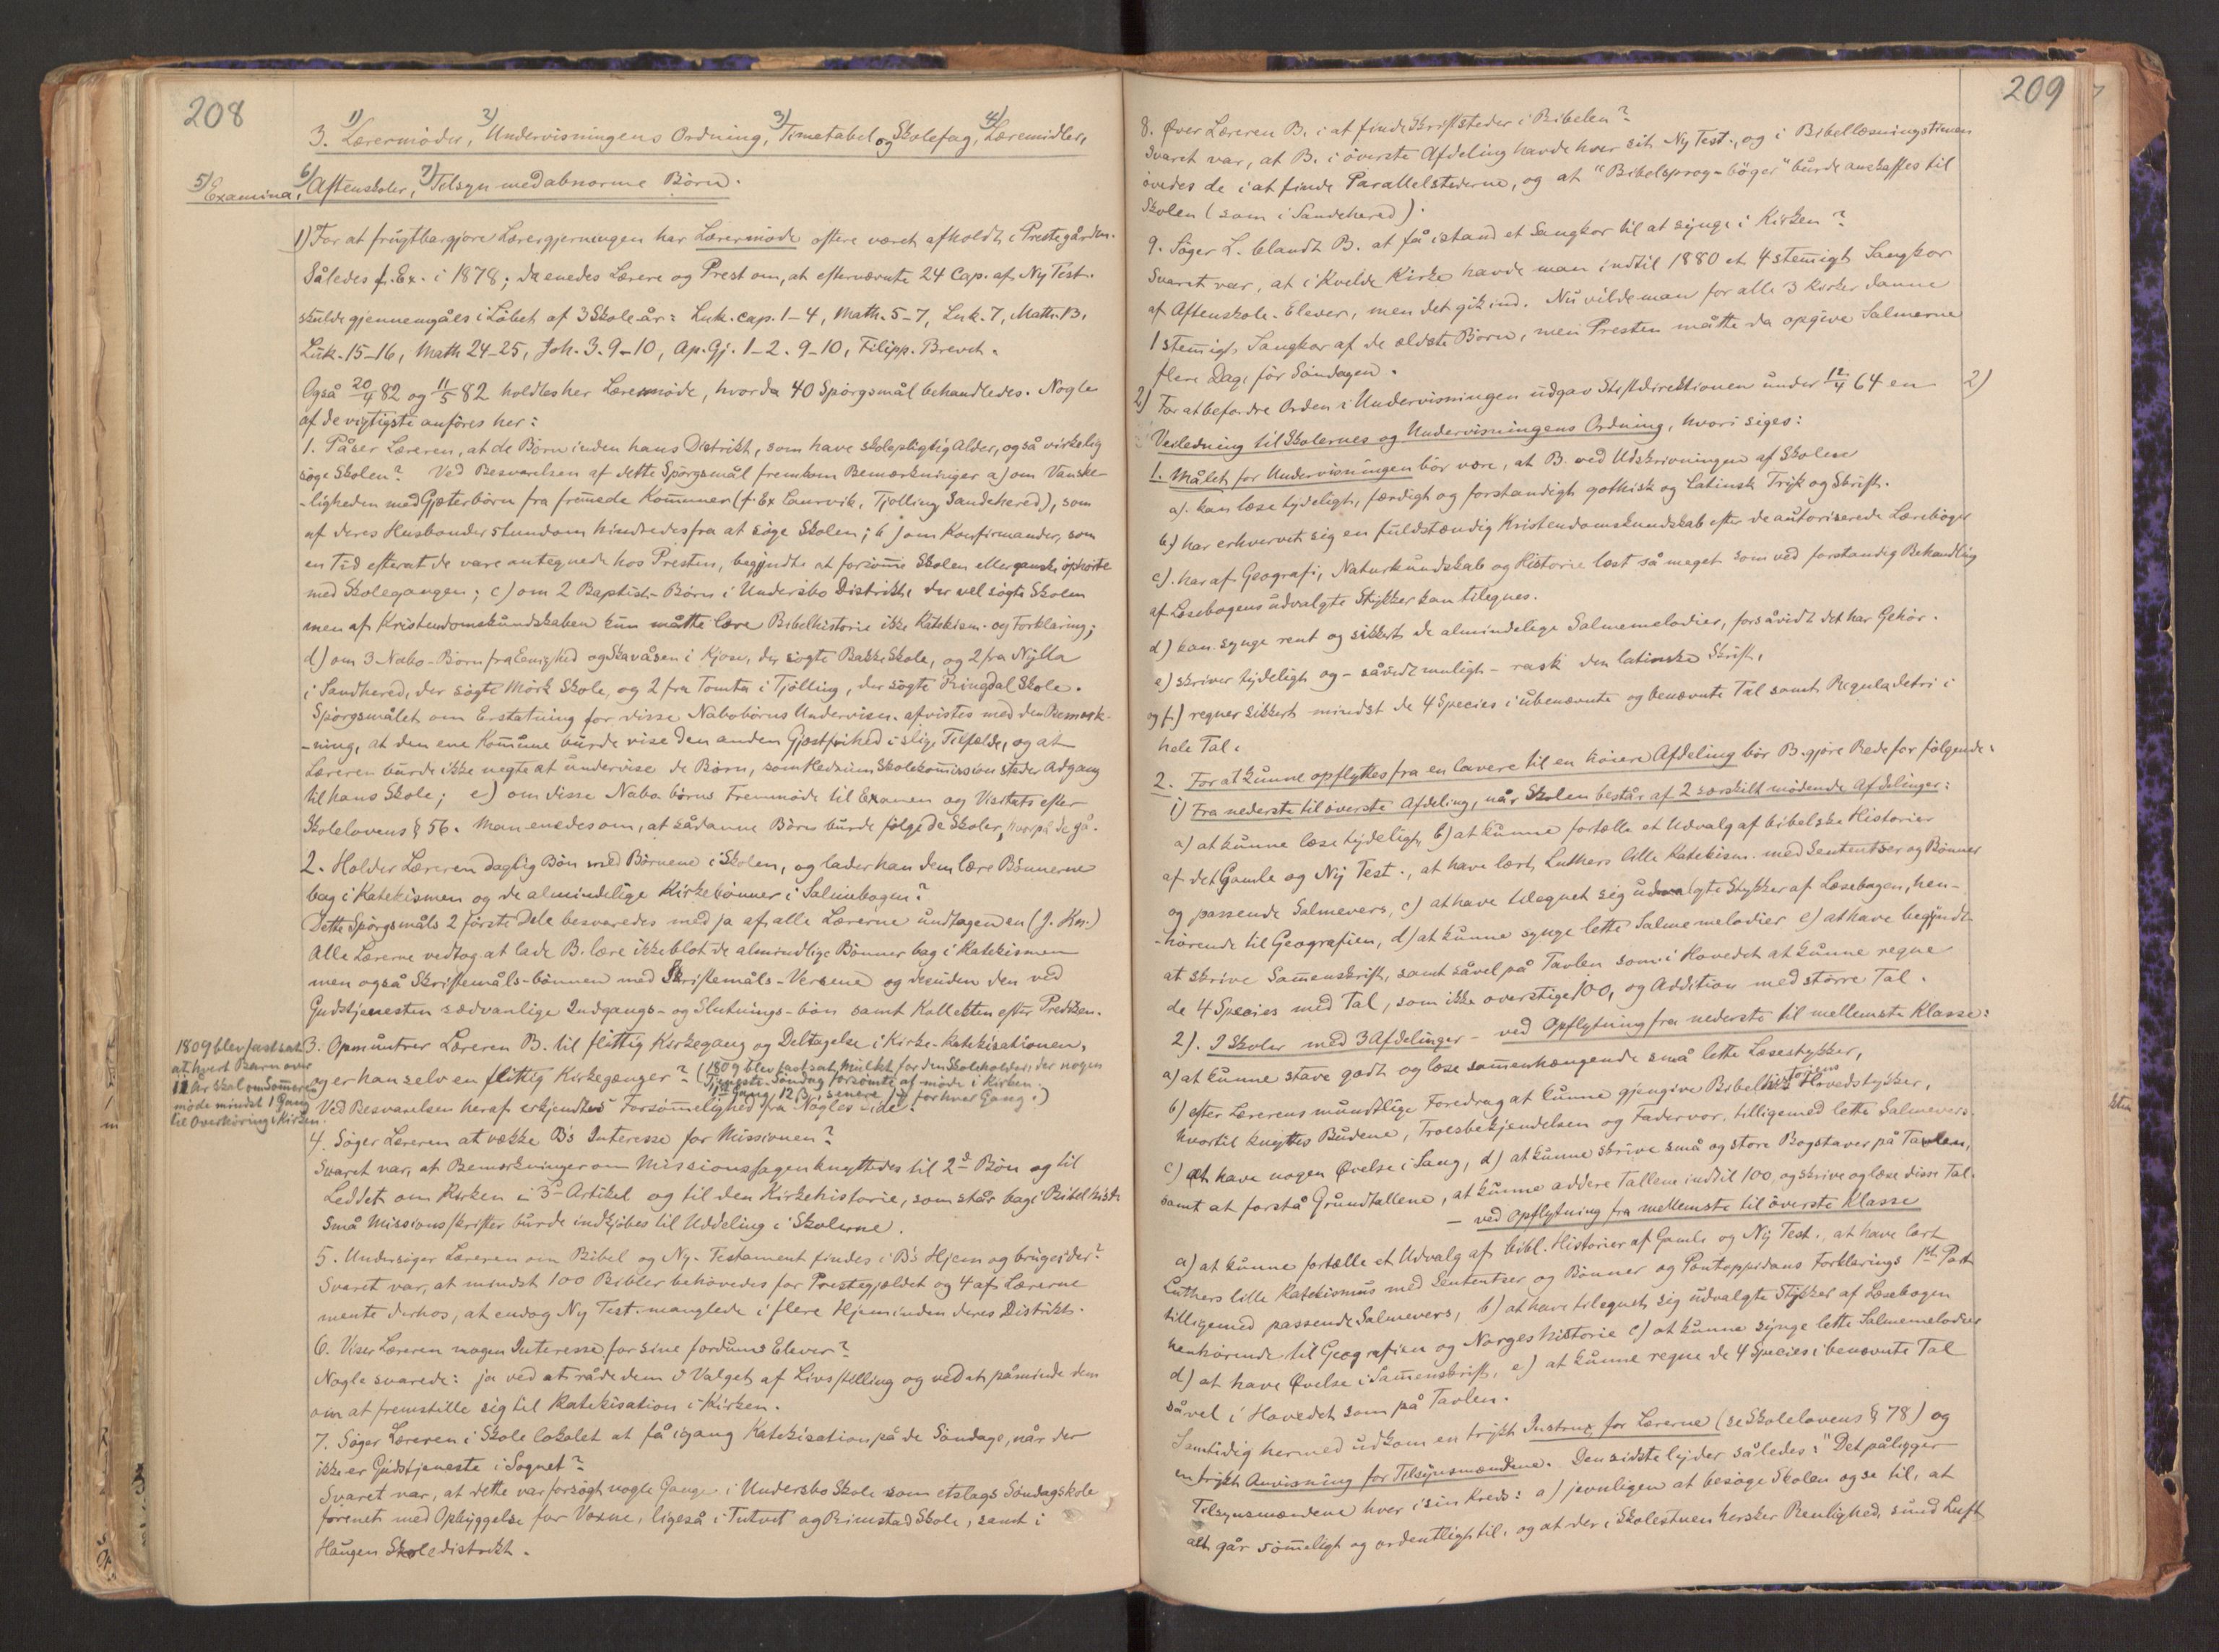 208
3. 1) Lærermöder, 2) Undervisningens Ordning, 3) Timetabel og Skolefag, 4) Læremidler,
5) Examina, 6) Aftenskoler, 7) Tilsyn med abnorme Börn.
1) For at frugtbargjöre Lærergjerningen har Lærermöde oftere været afholdt i Prestegården.
Således f. Ex. i 1878; da enedes Lærere og Prest om, at efternævnte 24 Cap. af Ny Test.
skulde gjennemgåes i Löbet af 3 Skoleår: Luk. cap. 1-4, Math. 5-7, Luk. 7, Math. 13,
Luk. 15-16, Math 24-25, Joh. 3. 9-10, Ap. Gj. 1-2. 9-10, Filipp. Brevet.
Også 20/4 82 og 11/5 82 holdtes her Læremöde, hvorda 40 Spörgsmål behandledes. Nogle
af de vigtigste anföres her:
1. Påser Læreren, at de Börn inden hans Distrikt, som have skolepligtig Alder, også virkelig
söge Skolen? Ved Besvarelsen af dette Spörgsmål fremkom Bemærkninger a) om Vanske
-ligheden med Gjæterbörn fra fremede Komuner (f. Ex Laurvik, Tjölling Sandehered), som
af deres Husbonder stundom hindredes fra at söge Skolen; b) om Konfirmander, som
en Tid efterat de vare antegnede hos Presten, begyndte at forsöme Skolen eller ganske ophörte
med Skolegangen; c) om 2 Baptist-Börn i Undersbo Distrikt, der vel sögte Skolen
men af Kristendomskundskaben kun måtte lære Bibelhistorie ikke Katekism. og Forklaring;
d) om 3 Nabo-Börn fra Eenighed og Skavåsen i Kjose, der sögte Bakke Skole, og 2 fra Nylla
i Sandhered, der sögte Mörk Skole, og 2 fra Tomta i Tjölling, der sögte Ringdal Skole.
Spörgsmålet om Erstatning for disse Nabobörns Undervisn. afvistes med den Bemærk-
-ning, at den ene Komune burde vise den anden Gjestfrihed i slige Tilfælde, og at
Læreren burde ikke negte at undervise de Börn, som Hedrum Skolekomission steder Adgang
til hans Skole; e) om disse Nabobörns Fremmöde til Examen og Visitats efter
Skolelovens § 56. Man enedes om, at sådanne Börn burde fölge de Skoler, hvorpå de gå.
2. Holder Læreren daglig Bön med Börnene i Skolen, og lader han dem lære Bönnerne
bag i Katekismen og de almindelige Kirkebönner i Salmebogen?
Dette Spörgsmåls 2 förste Dele besvaredes med ja af alle Lærerne undtagen en (J. Kn.)
Alle Lærerne vedtog at lade B. lære ikke blot de almindlige Bönner bag i Katekismen
men også Skriftemåls-bönnen med Skriftemåls-Versene og desuden den ved
Gudstjenesten sædvanlige Indgangs- og Slutnings-bön samt Kollekten efter Prediken.
3. Opmuntrer Læreren B. til flittig Kirkegang og Deltagelse i Kirke-Katekisationen,
og er han selv en flittig Kirkegænger? (1809 blev fastsat Mulkt for den Skoleholder, der nogen
Tjeneste-Söndag forsömte at möde i Kirken.
1ste Gang 12 β, senere for hver Gang.)
Ved Besvarelsen heraf erkjendtes Forsömmelighed fra Nogles Side.
1809 blev fastsat
at hvert Barn over
12 År skal om Sommeren
möde mindst 1 Gang
til Overhöring i Kirken.
4. Söger Læreren at vække B's Interesse for Missionen?
Svaret var, at Bemærkninger om Missionssagen knyttedes til 2d Bön og til
Leddet om Kirken i 3d Artikel og til den Kirkehistorie, som står bag i Bibelhist.
Små Missionsskrifter burde indkjöbes til Uddeling i Skolerne.
5. Undersöger Læreren om Bibel og Ny-Testament findes i B's Hjem og bruges der?
Svaret var, at mindst 100 Bibler behövedes for Prestegjældet og 4 af Lærerne
mente derhos, at endog Ny Test. manglede i flere Hjem inden deres Distrikt.
6. Viser Læreren nogen Interesse for sine fordums Elever?
Nogle svarede: ja ved at råde dem i Valget af Livsstilling og ved at påminde dem
om at fremstille sig til Katekisation i Kirken.
7. Söger Læreren i Skolelokalet at få igang Katekisation på de Söndage, når der
ikke er Gudstjeneste i Sognet?
Svaret var, at dette var forsögt nogle Gange i Undersbo Skole som etslags Söndagskole
forenet med Opbyggelse for Voxne, ligeså i Tutvet og Rimstad Skole, samt i
Haugen Skoledistrikt.
209
8. Över Læreren B. i at finde Skriftsteder i Bibelen?
Svaret var, at B. i överste Afdeling havde hver sit Ny Test., og i Bibellæsningstimen
övedes de i at finde Parallelstederne, og at "Bibelsprog-böger" burde anskaffes til
Skolen (som i Sandehered).
9. Söger L. blandt B. at få istand et Sangkor til at synge i Kirken?
Svaret var, at i Kvelde Kirke havde man indtil 1880 et 4stemigt Sangkor
af Aftenskole-Elever, men det gik ind. Nu vilde man for alle 3 Kirker danne
1stemigt Sangkor af de ældste Börn, men Presten måtte da opgive Salmerne
flere Dage för Söndagen.
2) For at befordre Orden i Undervisningen udgav Stiftdirektionen under 12/4 64 en 2)
Veiledning til Skolernes og Undervisningens Ordning, hvori siges:
1. Målet for Undervisningen bör være, at B. ved Udskrivningen af Skolen
a). kan læse tydeligt, færdigt og forstandigt gothisk og latinsk Tryk og Skrift.
b) har erhvervet sig en fuldstændig Kristendomskundskab efter de autoriserede Læreböger
c). har af Geografi, Naturkundskab og Historie læst så meget som ved forstandig Behandling
af Læsebogens udvalgte Stykker kan tilegnes.
d) kan synge rent og sikkert de almindelige Salmemelodier, forsåvidt det har Gehör.
e) skriver tydeligt og - såvidt muligt - rask den latinske Skrift,
og f) regner sikkert mindst de 4 Species i ubenævnte og benævnte Tal samt Reguladetri i
hele Tal.
2. For at kunne opflyttes fra en lavere til en höiere Afdeling bör B. gjöre Rede for fölgende:
1) Fra nederste til överste Afdeling, når Skolen består af 2 særskilt mödende Afdelinger:
a) at kunne læse tydeligt, b) at kunne fortælle et Udvalg af bibelske Historier
af det Gamle og Ny Test., at have lært Luthers lille Katekism. med Sententser og Bönner
og passende Salmevers, c) at have tilegnet sig udvalgte Stykker af Læsebogen, hen-
-hörende til Geografien, d) at kunne synge lette Salmemelodier e) at have begyndt
at skrive Samenskrift, samt såvel på Tavlen som i Hovedet at kunne regne
de 4 Species med Tal, som ikke overstige 100, og Addition med större Tal.
2). I Skoler med 3 Afdelinger - ved Opflytning fra nederste til mellemste Klasse:
a) at kunne stave godt og læse samenhængende små lette Læsestykker,
b) efter Lærerens mundtlige Foredrag at kunne gjengive Bibelhistoriens Hovedstykker,
hvortil knyttes Budene, Troesbekjendelsen og Fadervor, tilligemed lette Salmevers.
c) at have nogen Övelse i Sang, d) at kunne skrive små og store Bogstaver på Tavlen,
samt at forstå Grundtallene, at kunne addere Tallene indtil 100, og skrive og læse disse Tal.
- ved Opflytning fra mellemste til överste Klasse
a) at kunne fortælle et Udvalg af bibl. Historier af Gamle og Ny Test., at have lært
Luthers lille Katekismus med Sententser og Bönner og Pontoppidans Forklarings 1st Part
tilligemed passende Salmevers, b) at have tilegnet sig udvalgte Stykker af Læsebogen
henhörende til Geografien og Norges historie c) at kunne synge lette Salmemelodier
d) at have Övelse i Samenskrift, e) at kunne regne de 4 Species i benævnte Tal
såvel i Hovedet som på Tavlen.
Samtidig hermed udkom en trykt Instrux for Lærerne (se Skolelovens § 78) og
en trykt Anvisning for Tilsynsmændene. Den sidste lyder således: "Det påligger
Tilsynsmændene hver i sin Kreds: a) jevnligen at besöge Skolen og se til, at
alt går sömeligt og ordentligt til, og at der i Skolestuen hersker Renlighed, sund Luft